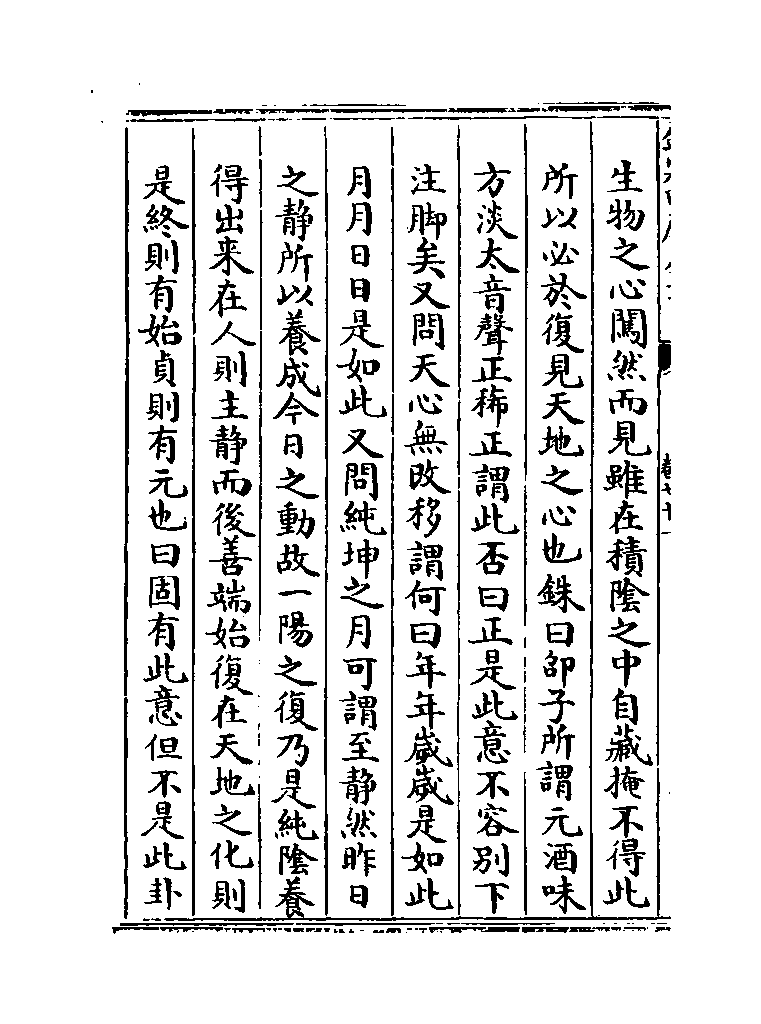 生物之心闖然而見雖在積隂之中自藏掩不得此
所以必於復見天地之心也銖曰邵子所謂元酒味
方淡太音聲正稀正謂此否曰正是此意不容别下
注脚矣又問天心無改移謂何曰年年嵗嵗是如此
月月日日是如此又問純坤之月可謂至静然昨日
之静所以養成今日之動故一陽之復乃是純隂養
得出来在人則主静而後善端始復在天地之化則
是終則有始貞則有元也曰固有此意但不是此卦